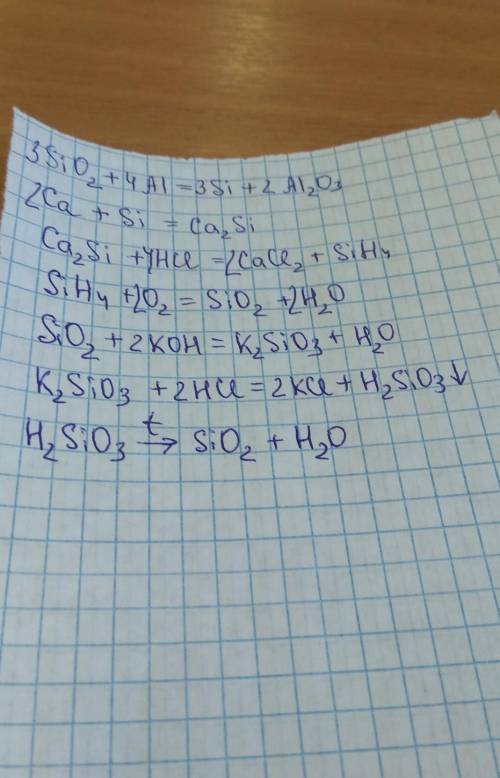 3SiO₂ + 4Al = 3Si + 2Al₂O₃
2Ca + Si = Ca₂Si
Ca₂Si + 4HCl = 2CaCl₂ + SiH₄
SiH₄ + 2O₂ = SiO₂ + 2H₂O
SiO₂ + 2KOH = K₂SiO₃ + H₂O
K₂SiO₃ + 2HCl = 2KCl + H₂SiO₃↓
H₂SiO₃ t→ SiO₂ + H₂O